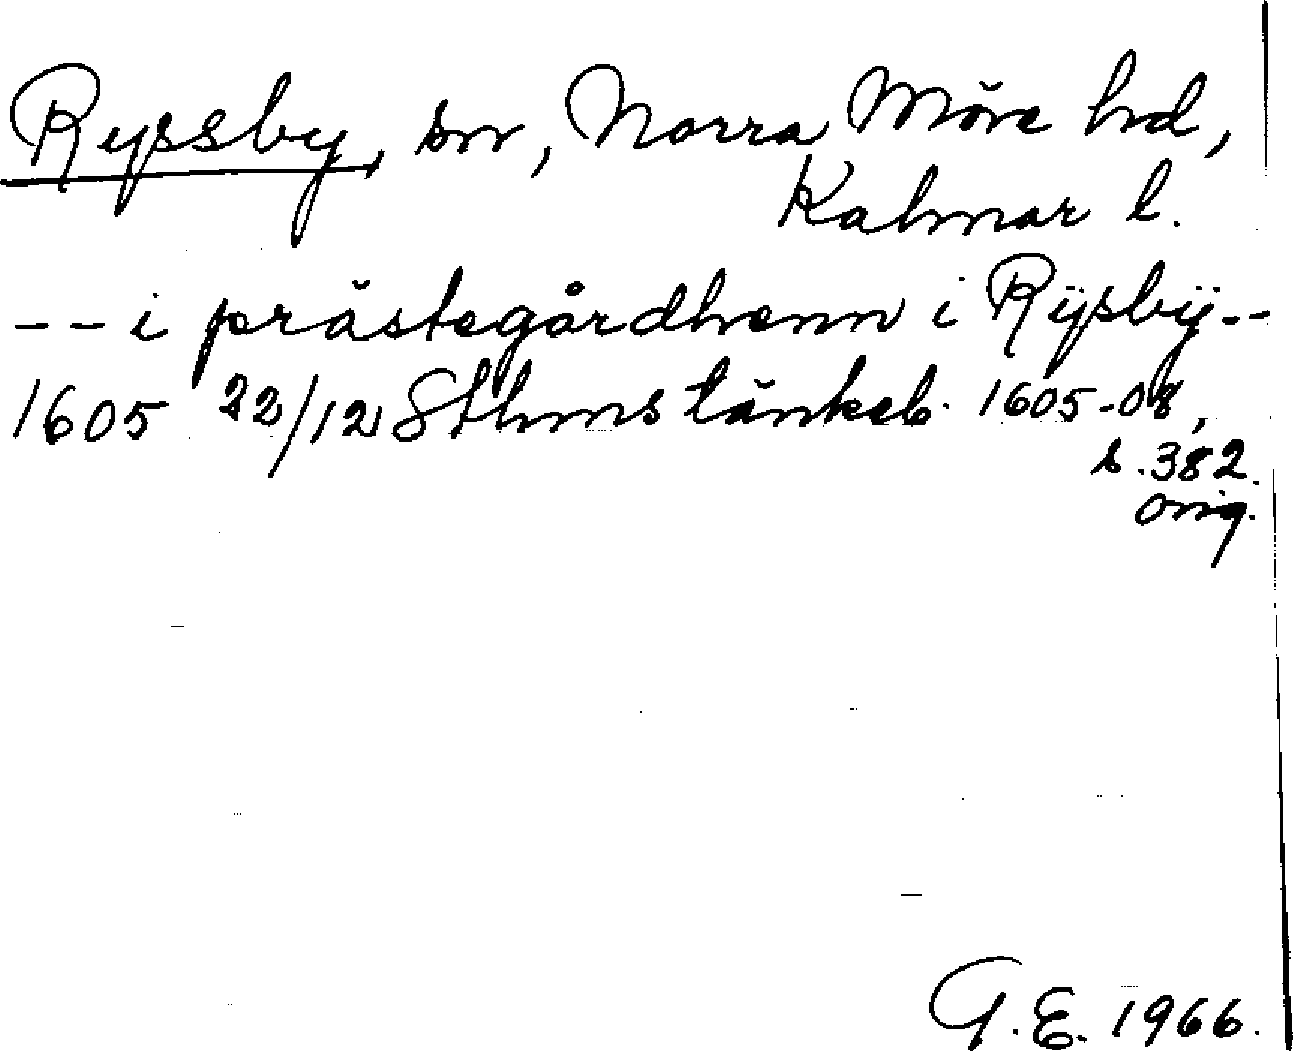 Ryssby, sn, Norra Möre hd,
Kalmar l.
-- i prästegårdhenn i Rÿsbÿ--
1605 22/12 Sthms tänkeb. 1605-08,
s. 382.
orig.
G.E. 1966.